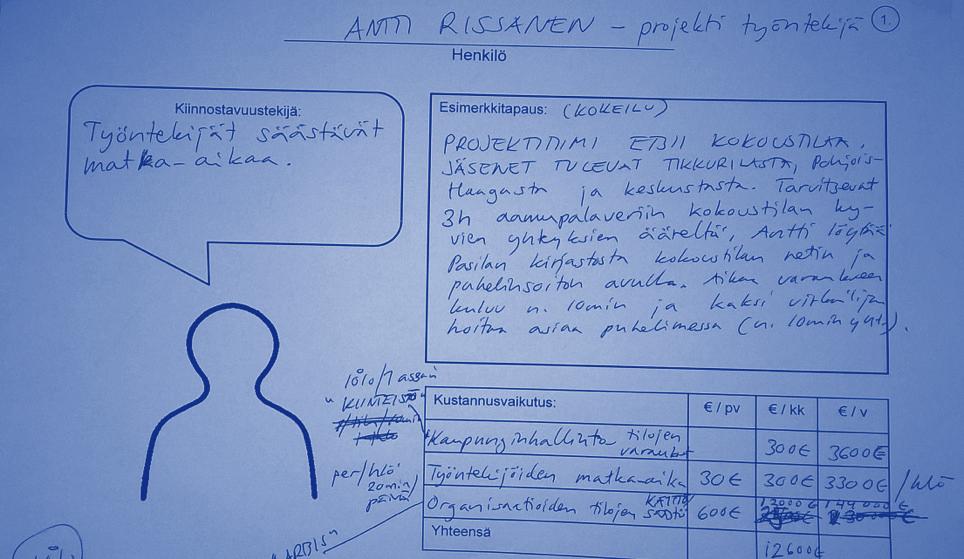 ANTTI RISSANEN – projekti työntekijä 1.
Henkilö
Kiinnostavuustekijä:
Työntekijät säästävät
matka-aikaa.
Esimerkkitapaus: (KOKEILU)
PROJEKTITIIMI ETSII KOKOUSTILAA.
JÄSENET TULEVAT TIKKURILASTA, Pohjois-
Haagasta ja keskustasta. Tarvitsevat
3h aamupalaveriin kokoustilan hy-
vien yhteyksien ääreltä, Antti löytää
Pasilan kirjastosta kokoustilan netin ja
puhelinsoiton avulla. Aikaa varaukseen
kuluu n. 10min ja kaksi virkailijaa
hoitaa asiaa puhelimessa (n. 10min yht.).
"KIINTEISTÖ"
per/hlö
20min/
päivä
Kustannusvaikutus: €/pv €/kk €/v
Kaupunginhallinta tilojen
varaukset 300€ 3600€
Työntekijöiden matka-aika 30€ 300€ 3300€ /hlö
Organisaatioiden tilojen säästö 600€ 12000€ 144000€
Yhteensä
12600€